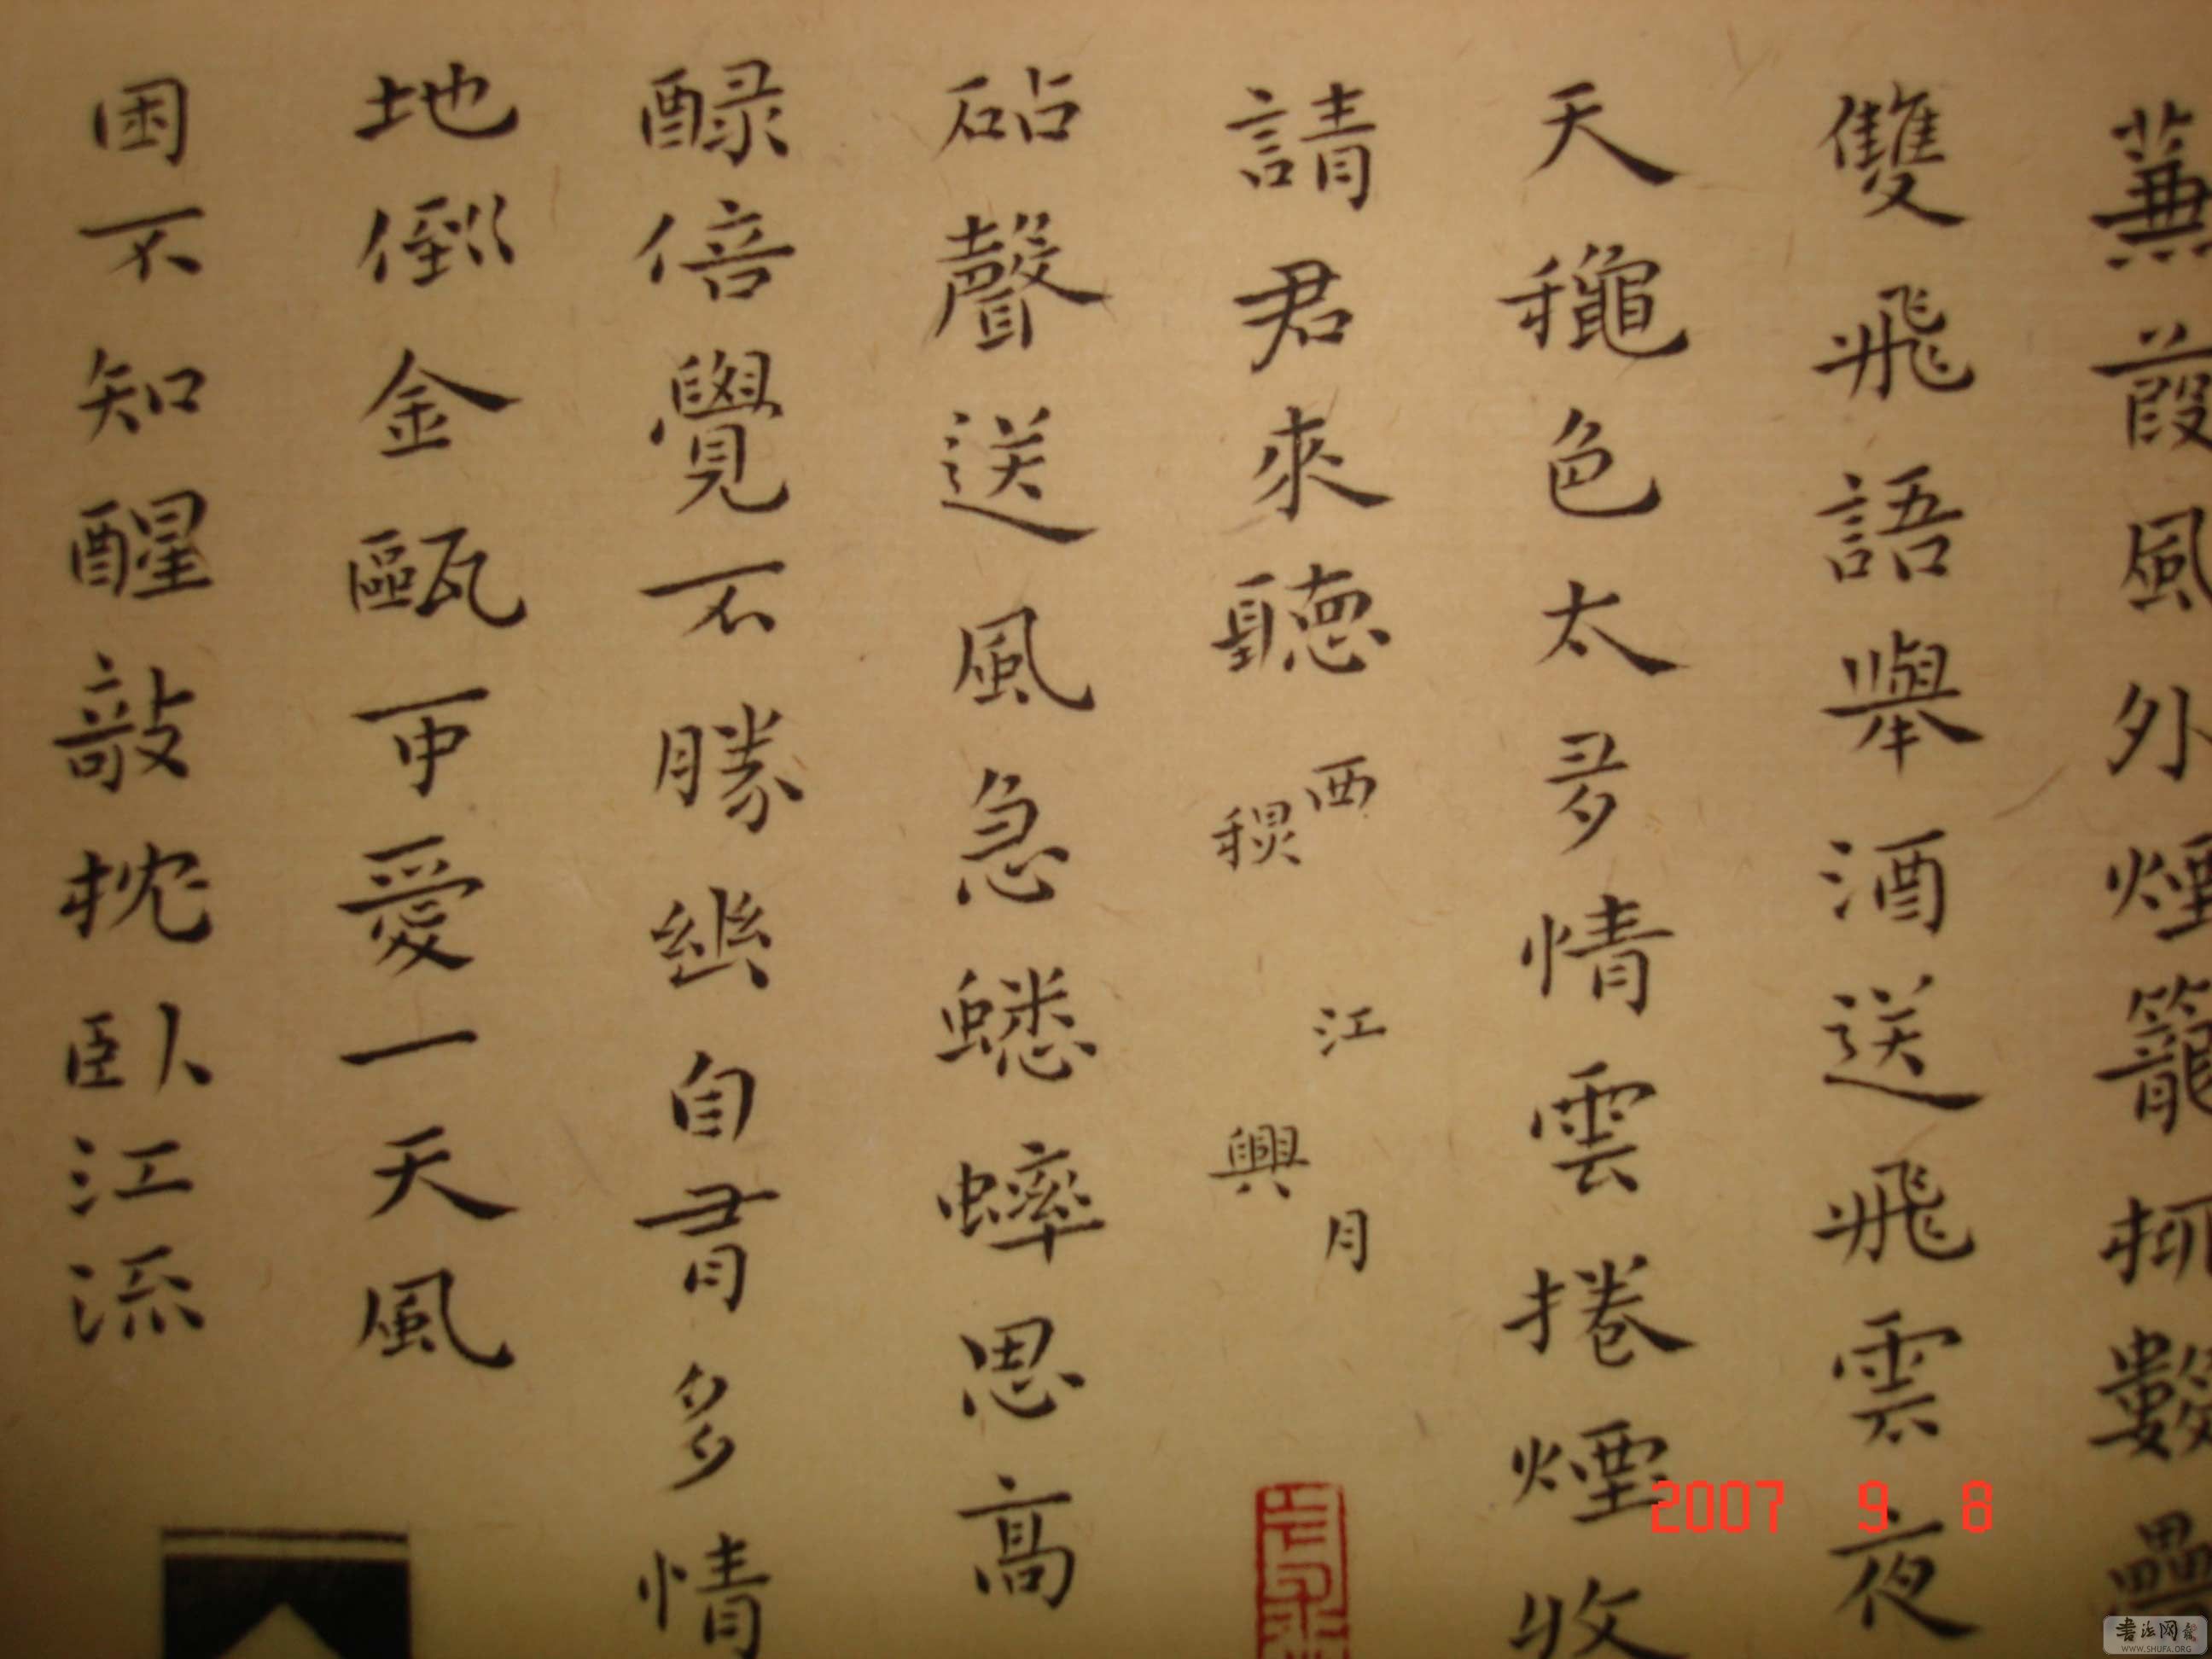 蒹葭風外煙籠柳數疊
雙飛語舉酒送飛雲夜
天穐色太多情雲捲煙收
請君來聽
西江月
秋興
砧聲送風急蟋蟀思高
醁倍覺不勝幽自有多情
地倒金甌可愛一天風
困不知醒敲枕臥江流
2007 9 8
书法网
WWW.SHUFA.ORG